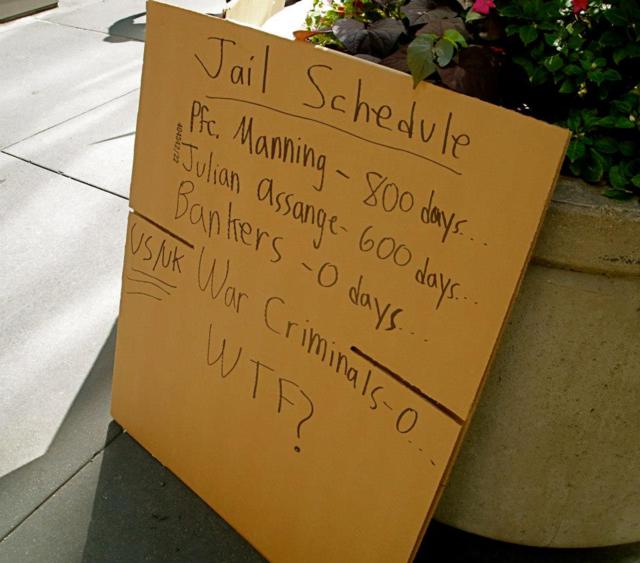 Jail Schedule
Pfc. Manning - 800 days...
Julian Assange - 600 days...
Bankers - 0 days...
US/UK War Criminals - 0...
WTF?